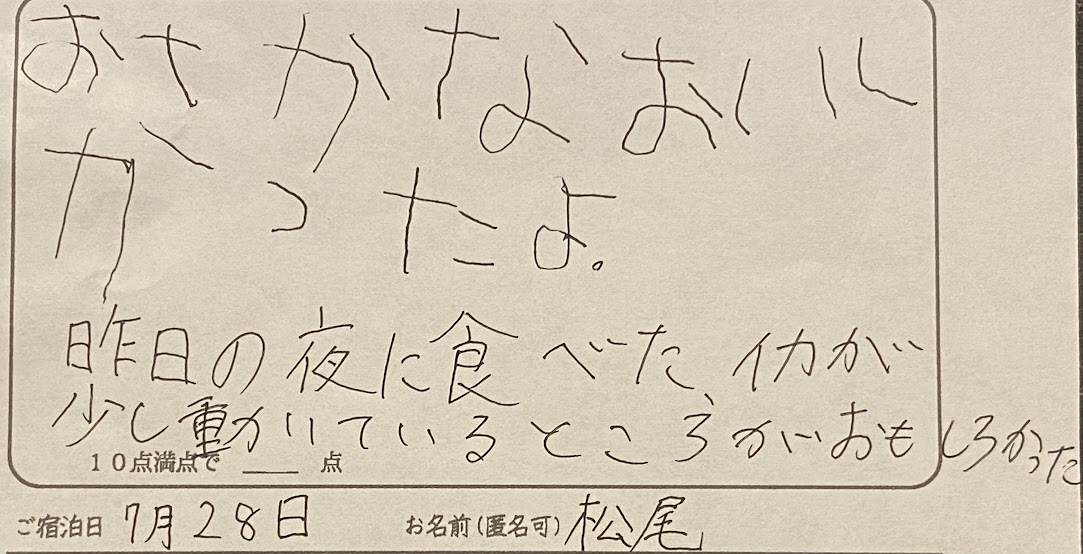 おさかなおいし
かったよ。
昨日の夜に食べた イカが
少し動いているところがおもしろかった
10点満点で ___ 点
ご宿泊日 7月28日 お名前(匿名可) 松尾